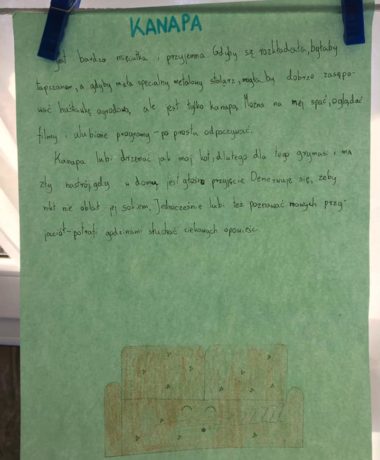 KANAPA
Jest bardzo mięciutka i przyjemna. Gdyby się rozkładała, byłaby
tapczanem, a gdyby miała specjalny metalowy stolarz, miała by dobrze zastępo-
wać huśtawkę ogrodową, ale jest tylko kanapą. Można na niej spać, oglądać
filmy i ulubione programy - po prostu odpoczywać.
Kanapa lubi drzemać jak mój kot, dlatego dla tego grymasi i ma
zły nastrój, gdy w domu jest głośne przyjęcie. Denerwuje się, żeby
nikt nie oblał jej sokiem. Jednocześnie lubi też poznawać nowych przy-
jaciół - potrafi godzinami słuchać ciekawych opowieści.